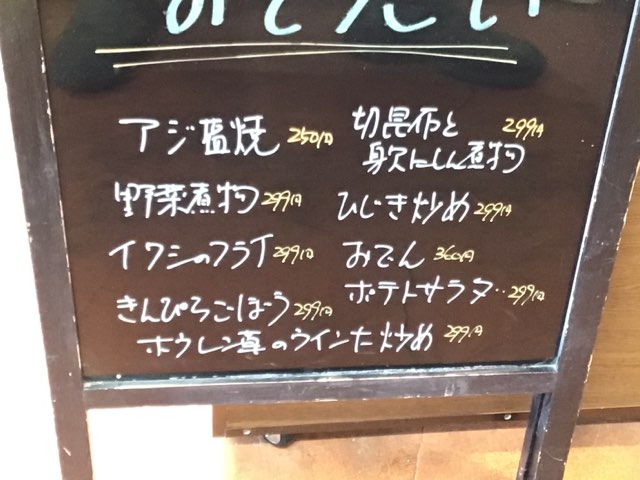 おそうざい
アジ塩焼 250円
切昆布と 299円
身欠にしん煮物
野菜煮物 299円
ひじき炒め 299円
イワシのフライ 299円
おでん 360円
ポテトサラダ 299円
きんぴらごぼう 299円
ホウレン草のウインナー炒め 299円